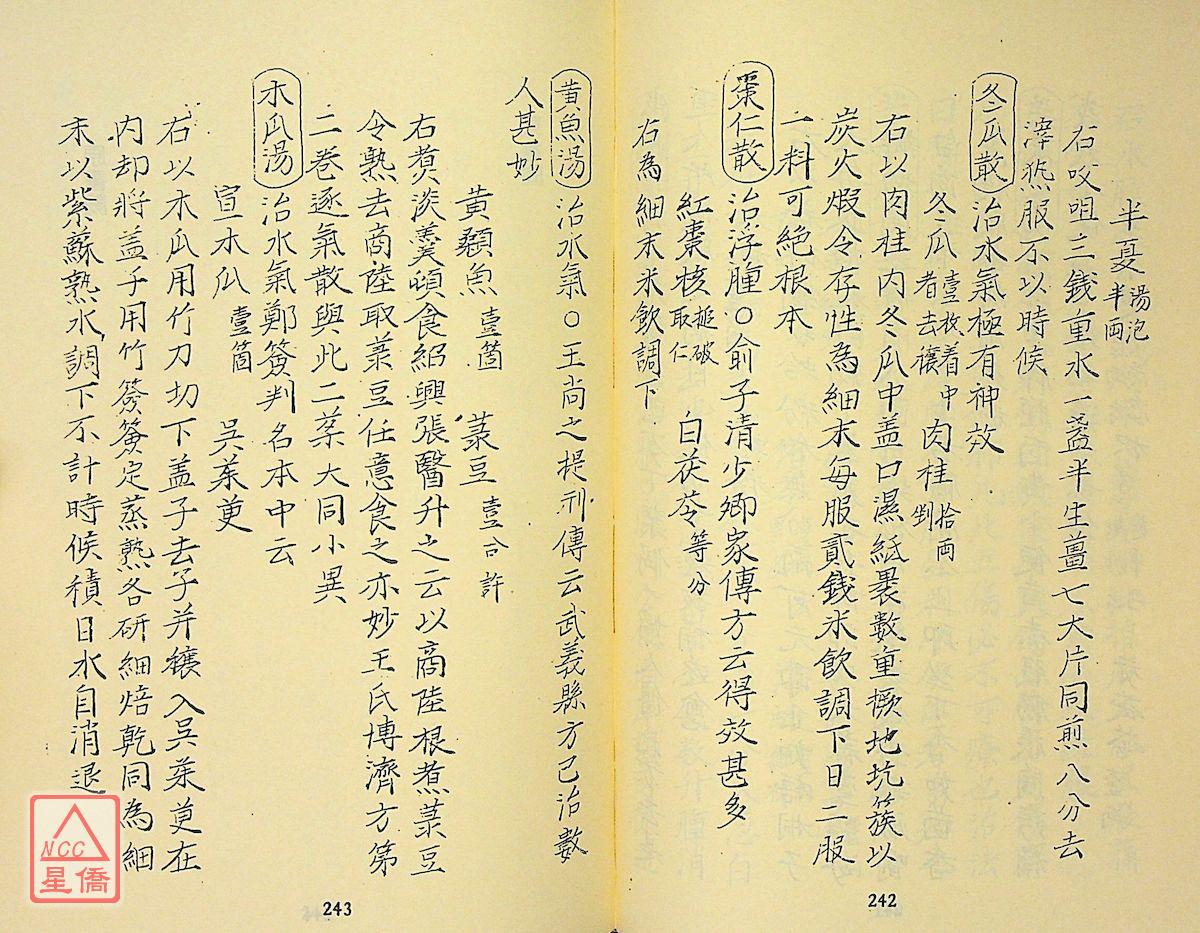 半夏 半兩湯泡
右㕮咀三錢重水一盞半生薑七大片同煎八分去
滓熱服不以時候
冬瓜散 治水氣極有神效
冬瓜 壹枚着中者去穰 肉桂 拾兩剉
右以肉桂內冬瓜中盖口濕紙裹數重橛地坑簇以
炭火煆令存性為細末每服貳錢米飲調下日二服
一料可絕根本
棗仁散 治浮腫○俞子清少卿家傳方云得效甚多
紅棗核 搥破取仁 白茯苓 等分
右為細末米飲調下
242
黃魚湯 治水氣○王尚之提刑傳云武義縣方已治數
人甚妙
黃顙魚 壹箇 菉豆 壹合許
右煑淡羮頓食紹興張醫升之云以商陸根煮菉豆
令熟去商陸取菉豆任意食之亦妙王氏博濟方第
二卷逐氣散與此二藥大同小異
木瓜湯 治水氣鄭簽判名本中云
宣木瓜 壹箇 吳茱萸
右以木瓜用竹刀切下盖子去子并穰入吳茱萸在
內却將盖子用竹簽簽定蒸熟各研細焙乾同為細
末以紫蘇熟水調下不計時候積日水自消退
243
NCC
星僑